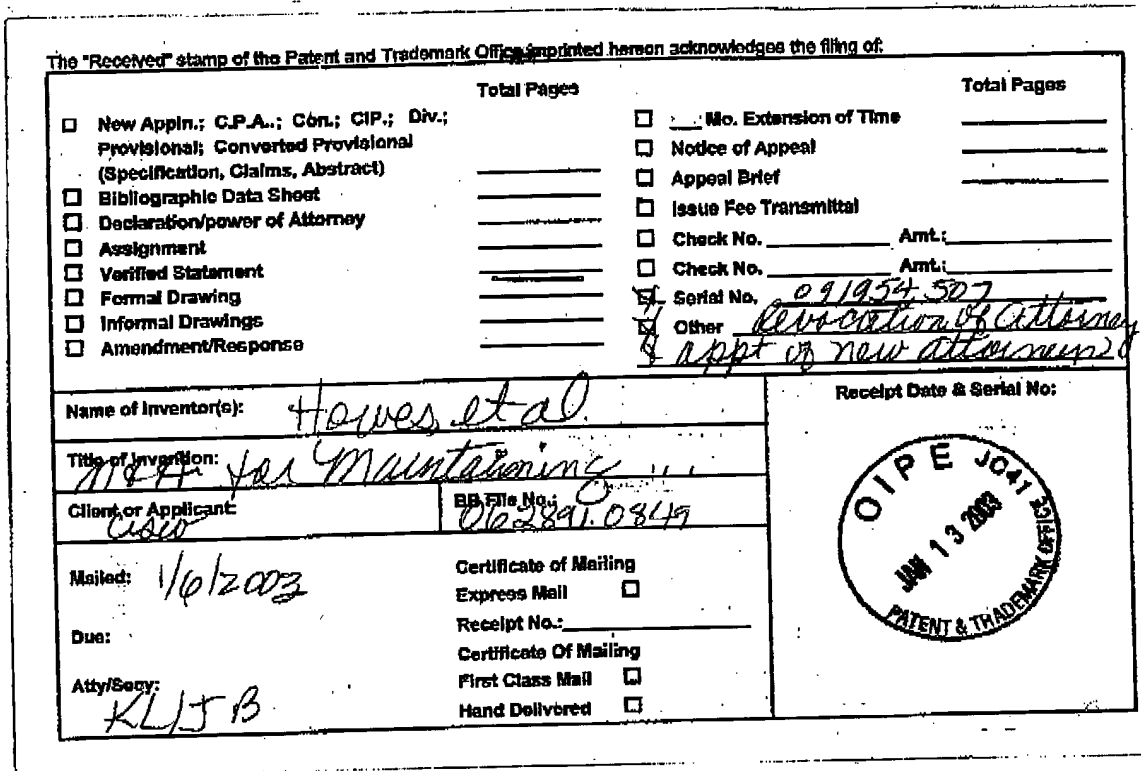 The "Received" stamp of the Patent and Trademark Office imprinted hereon acknowledges the filing of:
Total Pages
New Appln.; C.P.A..; Con.; CIP.; Div.;
Provisional; Converted Provisional
(Specification, Claims, Abstract)
Bibliographic Data Sheet
Declaration/power of Attorney
Assignment
Verified Statement
Formal Drawing
Informal Drawings
Amendment/Response
Total Pages
___ Mo. Extension of Time
Notice of Appeal
Appeal Brief
Issue Fee Transmittal
Check No. Amt.:
Check No. Amt.:
Serial No. 09/954,507
Other Revocation of Attorney
& appt of new attorneys
Name of Inventor(s): Howes, et al.
Title of Invention: for Maintaining ...
Client or Applicant: Cisco
BB File No.: 062891.0849
Mailed: 1/6/2003
Due:
Atty/Secy: KL/JB
Certificate of Mailing
Express Mail
Receipt No.:
Certificate Of Mailing
First Class Mail
Hand Delivered
Receipt Date & Serial No:
OIPE JC41
JAN 13 2003
PATENT & TRADEMARK OFFICE